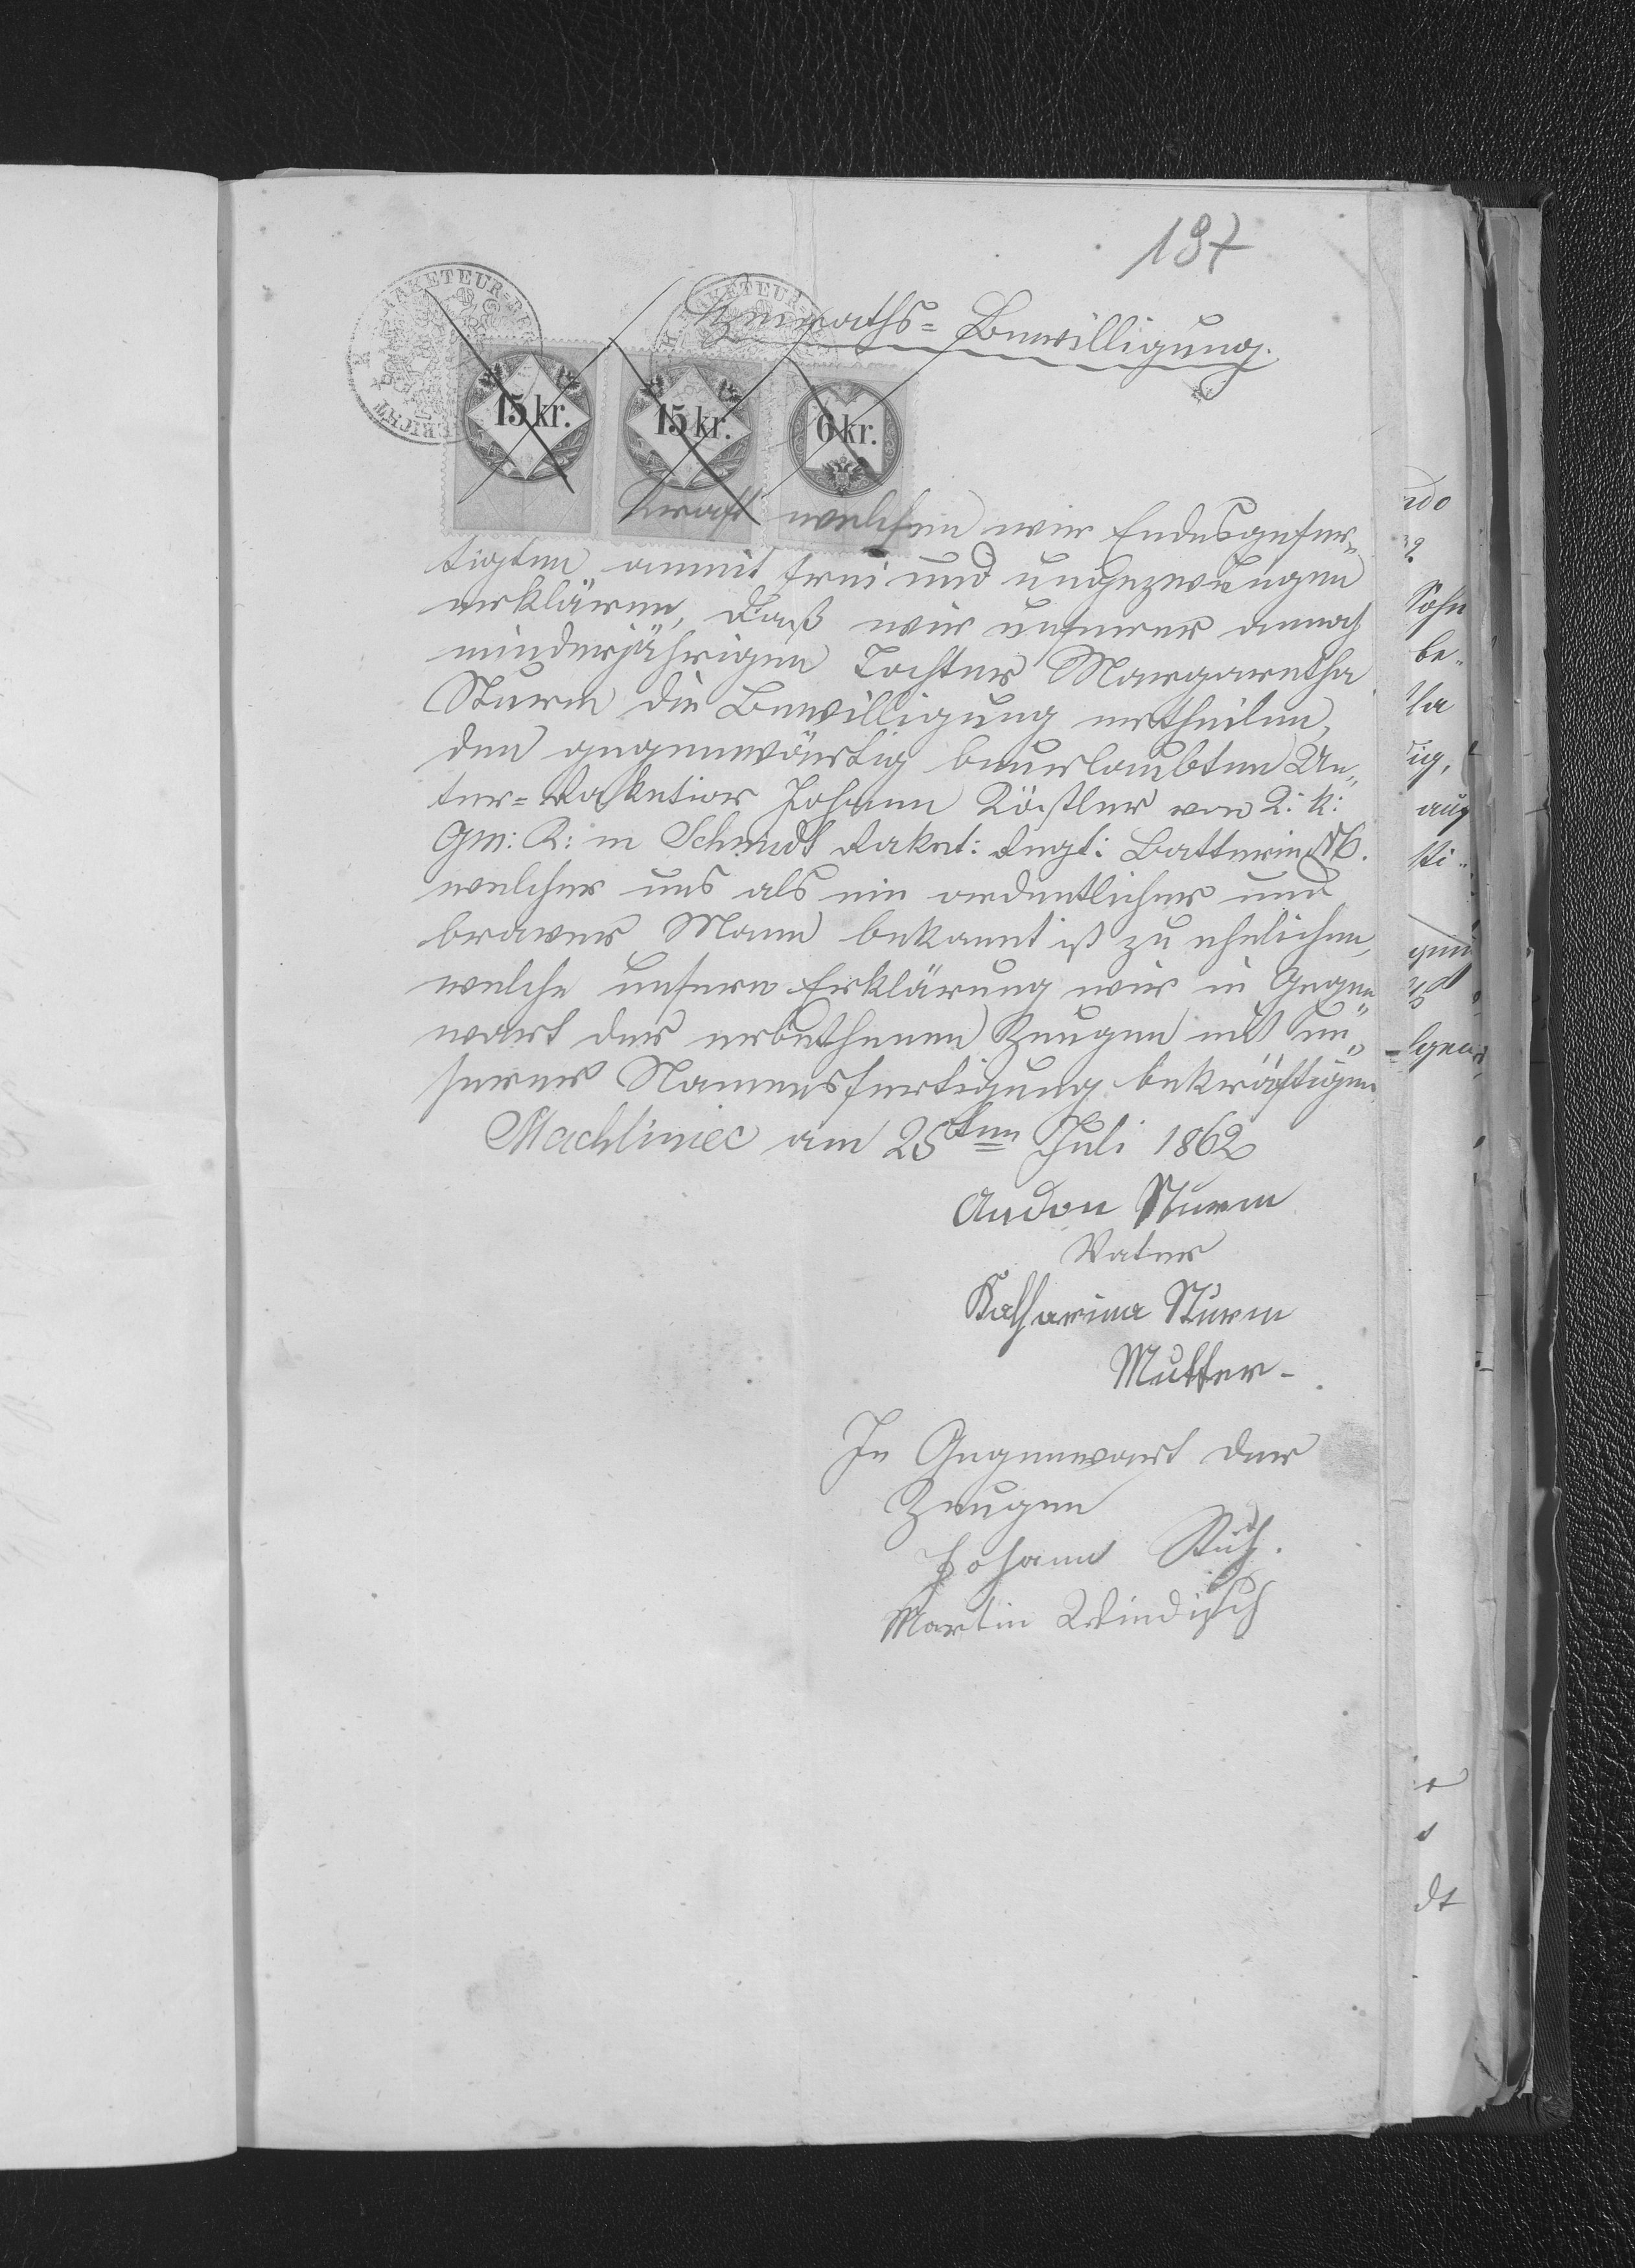 197
Heiraths=Bewilligung.
15 kr. 15 kr. 6 kr.
Kraft welchen wir Endesgefer„
tigten anmit frei und ungezwungen
erklären, daß wir unserer annoch
minderjährigen Tochter Margaretha
Sturm die Bewilligung ertheilen,
den gegenwärtig beurlaubten Un„
ter=Raketier Johann Köstler von
Schmidt Raket: Regt: Batterie
welcher uns als ein ordentlicher und
braver Mann bekannt ist zu ehelichen,
welche unsere Erklärung wir in Gegen„
wart der erbethenen Zeugen mit un„
serer Namensfertigung bekräftigen.
Machliniec am 25ten Juli 1862
Andon Sturm
Vater
Katharina Sturm
Mutter-
In Gegenwart der
Zeugen
Johann
Martin Windisch